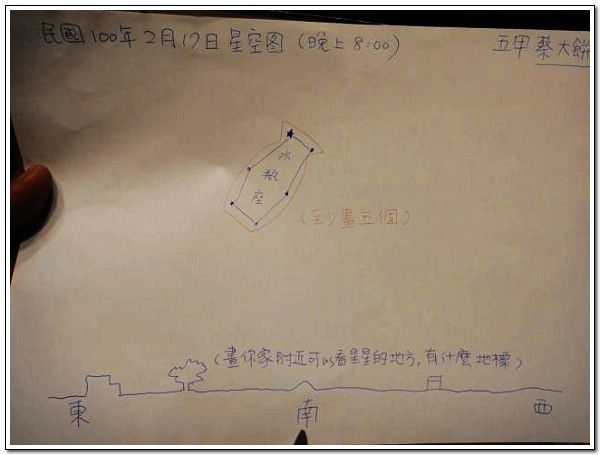 民國100年2月17日星空图(晚上8:00)
五甲 蔡大餅
水瓶座
(至少畫五個)
(畫你家附近可以看星星的地方,有什麼地標)
東 南 西